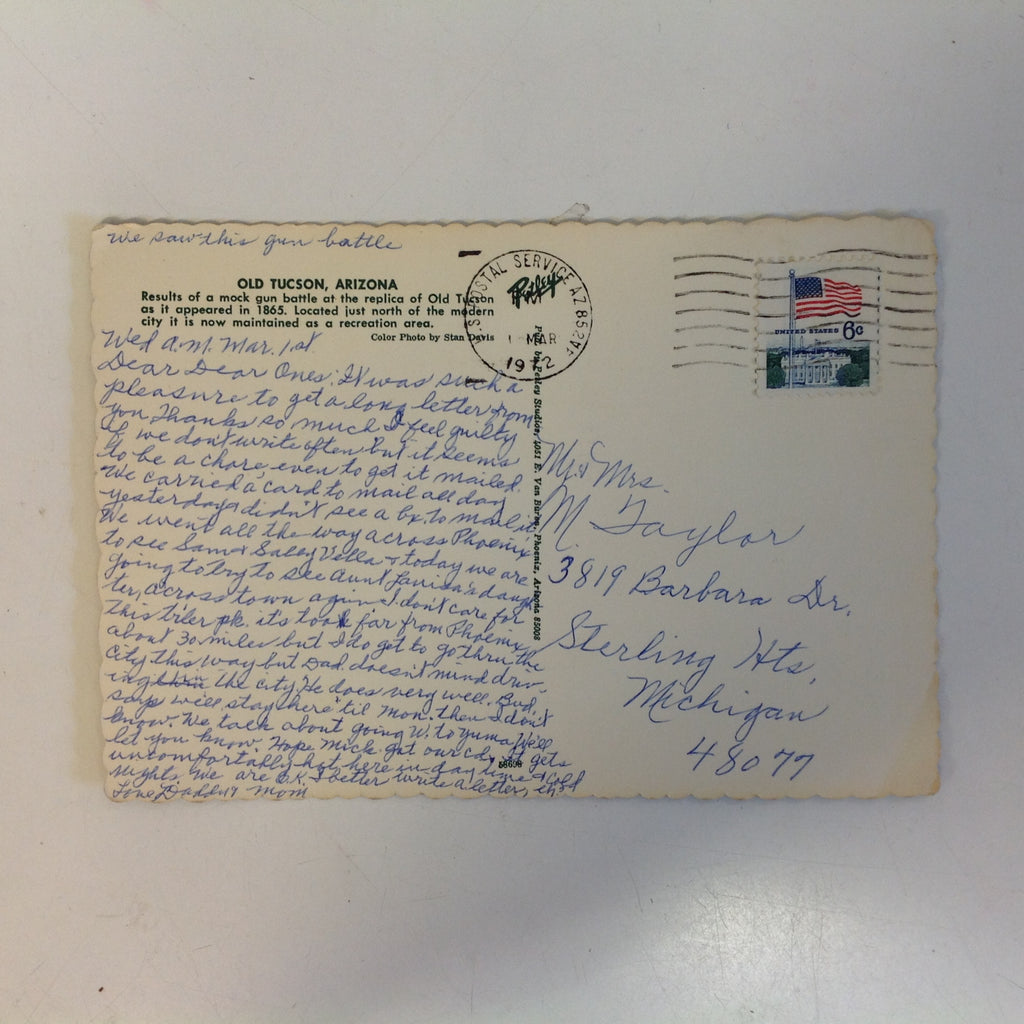 We saw this gun battle
OLD TUCSON, ARIZONA
Results of a mock gun battle at the replica of Old Tucson
as it appeared in 1865. Located just north of the modern
city it is now maintained as a recreation area.
Color Photo by Stan Davis
Wed a.m. Mar. 1st
Dear Dear Ones. It was such a
pleasure to get a long letter from
you Thanks so much I feel guilty
if we don't write often but it seems
to be a chore, even to get it mailed.
We carried a card to mail all day
yesterday & didn't see a bx. to mail it
We went all the way across Phoenix
to see Sam & Sally Vella & today we are
going to try to see Aunt Lavina's daugh
ter, across town again. I don't care for
this trler pk. it's too far from Phoenix
about 30 miles but I do get to go thru the
city this way but Dad doesn't mind driv-
ing the city. He does very well. Bud
says will stay here 'til Mon. then I don't
know. We talk about going W. to Yuma We'll
let you know. Hope Mich. got our cd. It gets
uncomfortably hot here in day time & cold
nights. We are O.K. I better write a letter, eh?
Love, Daddy & Mom
U.S. POSTAL SERVICE AZ 852
MAR
1972
Petley
Pub. by Petley Studios, 4051 E. Van Buren, Phoenix, Arizona 85008
UNITED STATES 6c
Mr & Mrs.
M Taylor
3819 Barbara Dr.
Sterling Hts,
Michigan
48077